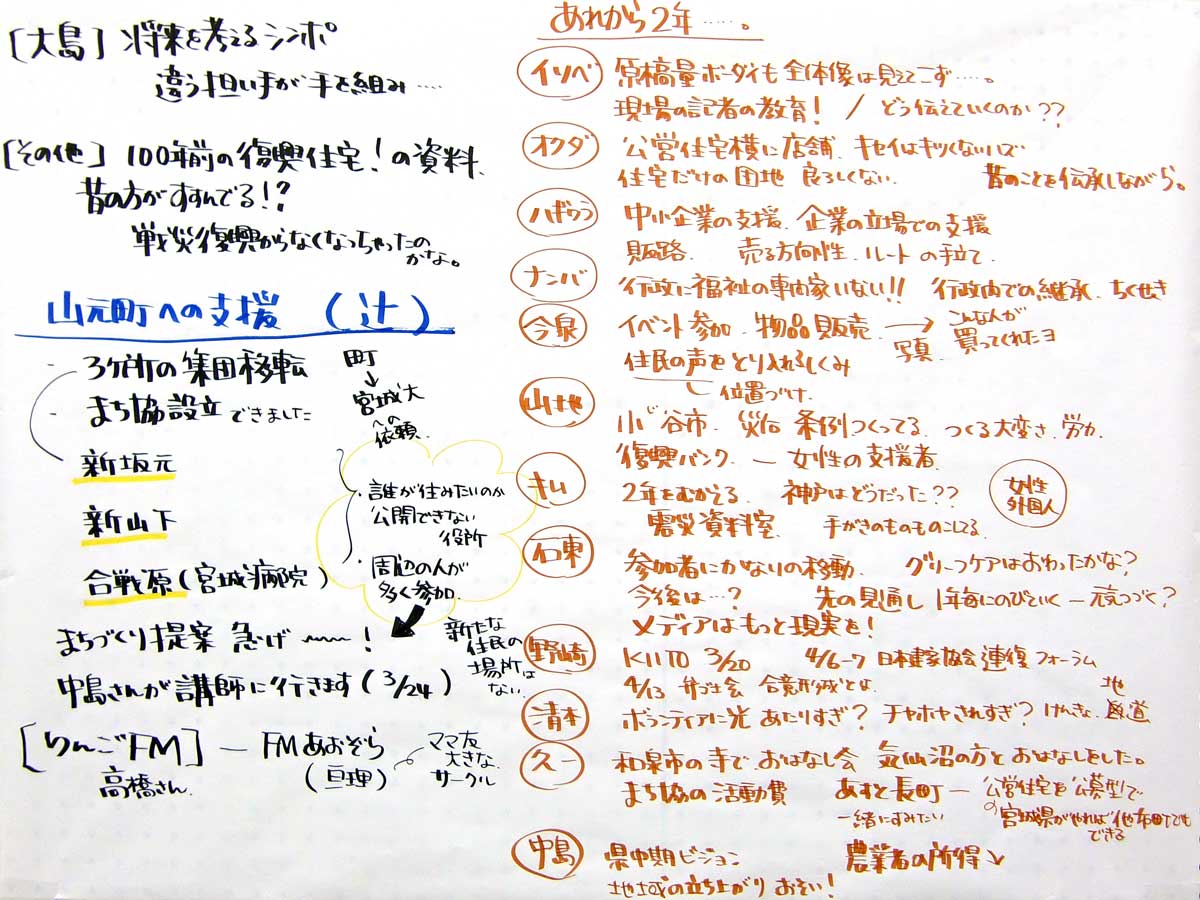 [大島] 将来を考えるシンポ
違う担い手が手を組み‥‥
[その他] 100年前の復興住宅！の資料、
昔の方がすすんでる!?
戦災復興からなくなっちゃったの
かな。
山元町への支援 (辻)
- 3ヶ所の集団移転
- まち協設立できました
新坂元
新山下
合戦原(宮城病院)
町
↓
宮城大
への
依頼
・誰が住みたいのか
公開できない
役所
・周辺の人が
多く参加
新たな
住民の
場所は
ない
まちづくり提案 急げ〜〜！
中島さんが講師に行きます(3/24)
[りんごFM] — FMあおぞら
高橋さん
(亘理)
ママ友
大きな
サークル
あれから2年‥‥。
イソベ 原稿量ボーダイも全体像は見えてこず‥‥。
現場の記者の教育！ / どう伝えていくのか??
オクダ 公営住宅横に店舗、キセイはキツくないハズ
住宅だけの団地 良ろしくない、 昔のことを伝承しながら。
ハギワラ 中小企業の支援、企業の立場での支援
販路、 売る方向性、ルートの手立て、
ナンバ 行政に福祉の専門家いない!! 行政内での継承、ちくせき
今泉 イベント参加、物品販売 → こんなんが
写真 買ってくれたヨ
住民の声をとり入れるしくみ
位置づけ
山地 小谷市、災 条例つくってる、つくる大変さ、労力、
復興バンク — 女性の支援者
キム 2年をむかえる、神戸はどうだった??
女性
外国人
震災資料室、 手がきのものものこしてる
石東 参加者にかなりの移動、 グリーフケアはおわったかな？
今後は‥？ 先の見通し 1年毎にのびていく — 元気つづく？
メディアはもっと現実を！
野崎 KIITO 3/20 4/6-7 日本建家協会 連復フォーラム
4/13 サブ士会 合意形成とは
清本 ボランティアに光あたりすぎ？ チヤホヤされすぎ？ けんきょ、地道
久一 和泉市の寺でおはなし会 気仙沼の方とおはなししました。
まち協の活動費 あすと長町 — 公営住宅を公募型で
一緒にすみたい の宮城県がやれば他市町でも
できる
中島 県中期ビジョン 農業者の所得↘
地域の立ち上がりおそい！